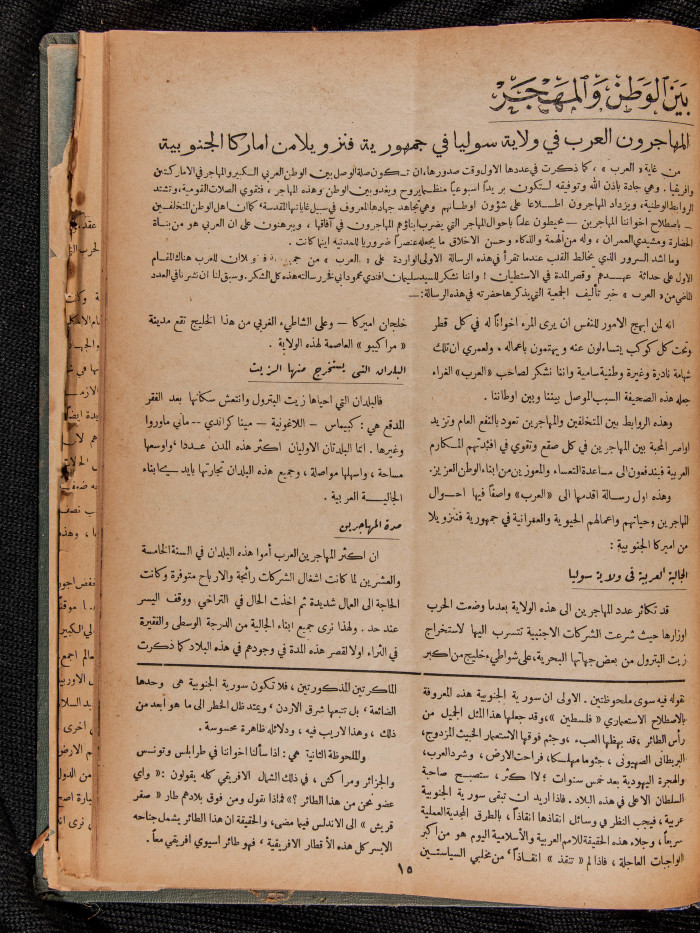 بين الوطن والمهجر
المهاجرون العرب في ولاية سوليا في جمهورية فنزويلا من اماركا الجنوبية
من غاية « العرب » ، كما ذكرت في عددها الاول وقت صدورها ، ان تكون صلة الوصل بين الوطن العربي الكبير والمهاجر في الاماركتين
وافريقيا . وهي جادة باذن الله وتوفيقه لتكون بريداً اسبوعياً منظماً يروح ويغدو بين الوطن وهذه المهاجر ، فتقوى الصلات القومية ، وتشتد
الروابط الوطنية ، ويزداد المهاجرون اطلاعا على شؤون اوطانهم وهي تجاهد جهادها المعروف في سبيل غاياتها المقدسة ، كما ان اهل الوطن المتخلفين
– باصطلاح اخواننا المهاجرين – محيطون علماً باحوال المهاجر التي يضرب ابناؤهم المهاجرون في آفاقها ، ويبرهنون على ان العربي هو من بناة
الحضارة ومشيدي العمران ، وله من الهمة والذكاء وحسن الاخلاق ما يجعله عنصراً ضروريا للمدنية اينما كانت .
وما اشد السرور الذي يخالط القلب عندما تقرأ في هذه الرسالة الاولى الواردة على « العرب » من للعرب هناك المقام
الاول على حداثة عهدهم وقصر المدة في الاستيطان ! واننا نشكر للسيد سليمان افندي محمود ابي فخر رسالته هذه كل الشكر . وسبق لنا ان نشرنا في العدد
الماضي من « العرب » خبر تأليف الجمعية التي يذكرها حضرته في هذه الرسالة : –
انه لمن ابهج الامور للنفس ان يرى المرء اخوانًا له في كل قطر
وتحت كل كوكب يتساءلون عنه ويهتمون باعماله . ولعمري ان تلك
شهامة نادرة وغيرة وطنية سامية واننا نشكر لصاحب « العرب » الغراء
جعله هذه الصحيفة السبب الموصل بيننا وبين اوطاننا .
وهذه الروابط بين المتخلفين والمهاجرين تعود بالنفع العام وتزيد
اواصر المحبة بين المهاجرين في كل صقع وتقوي في افئدتهم المكارم
العربية فيندفعون الى مساعدة التعساء والمعوزين من ابناء الوطن العزيز .
وهذه اول رسالة اقدمها الى « العرب » واصفاً فيها احوال
المهاجرين وحياتهم واعمالهم الحيوية والعمرانية في جمهورية فنزويلا
من اميركا الجنوبية :
الجالية العربية في ولاية سوليا
قد تكاثر عدد المهاجرين الى هذه الولاية بعدما وضعت الحرب
اوزارها حيث شرعت الشركات الاجنبية تتسرب اليها لاستخراج
زيت البترول من بعض جهاتها البحرية ، على شواطىء خليج من اكبر
خلجان اميركا – وعلى الشاطىء الغربي من هذا الخليج تقع مدينة
« مراكيبو » العاصمة لهذه الولاية .
البلدان التي يستخرج منها الزيت
فالبلدان التي احياها زيت البترول وانتعش سكانها بعد الفقر
المدقع هي : كبيماس – اللاغونية – مينا كراندي – ماني ماوروا
وغيرها . انما البلدتان الاوليان اكثر هذه المدن عددا ، واوسعها
مساحة ، واسهلها مواصلة ، وجميع هذه البلدان تجارتها بايدي ابناء
الجالية العربية .
مدة المهاجرين
ان اكثر المهاجرين العرب أموا هذه البلدان في السنة الخامسة
والعشرين لما كانت اشغال الشركات رائجة والارباح متوفرة وكانت
الحاجة الى العمال شديدة ثم اخذت الحال في التراخي ووقف اليسر
عند حد . ولهذا نرى جميع ابناء الجالية من الدرجة الوسطى والفقيرة
في الثراء اولا لقصر هذه المدة في وجودهم في هذه البلاد كما ذكرت
نقوله فيه سوى ملحوظتين . الاولى ان سورية الجنوبية هذه المعروفة
بالاصطلاح الاستعماري « فلسطين » ، وقد جعلها هذا المثل الجيل من
رأس الطائر ، قد بهظها العبء ، وجثم فوقها الاستعمار الخبيث المزدوج ،
البريطاني الصهيوني ، جثوما مهلكا ، فراحت الارض ، وشرد العرب ،
والهجرة اليهودية بعد خمس سنوات ؛ لا ستصبح صاحبة
السلطان الاعلى في هذه البلاد . فاذا اريد ان تبقى سورية الجنوبية
عربية ، فيجب النظر في وسائل انقاذها انقاذاً ، بالطرق المجدية العملية
سريعاً ، وجلاء هذه الحقيقة للامم العربية والأسلامية اليوم هو من اكبر
الواجبات العاجلة ، فاذا لم « تنقذ » انقاذاً من مخلبي السياستين
الماكرتين المذكورتين ، فلا تكون سورية الجنوبية هي وحدها
الضائعة ، بل تتبعها شرق الاردن ، ويمتد ظل الخطر الى ما هو أبعد من
ذلك ، وهذا لا ريب فيه ، ودلائله ظاهرة محسوسة .
والملحوظة الثانية هي : اذا سألنا اخواننا في طرابلس وتونس
والجزائر ومراكش ، في ذلك الشمال الافريقي كله يقولون : « واي
عضو نحن من هذا الطائر ؟ » فماذا نقول ومن فوق بلادهم طار « صقر
قريش » الى الاندلس فيما مضى ، والحقيقة ان هذا الطائر يشمل جناحه
الايسر كل هذه الأقطار الافريقية ، فهو طائر اسيوي افريقي معاً .
١٥